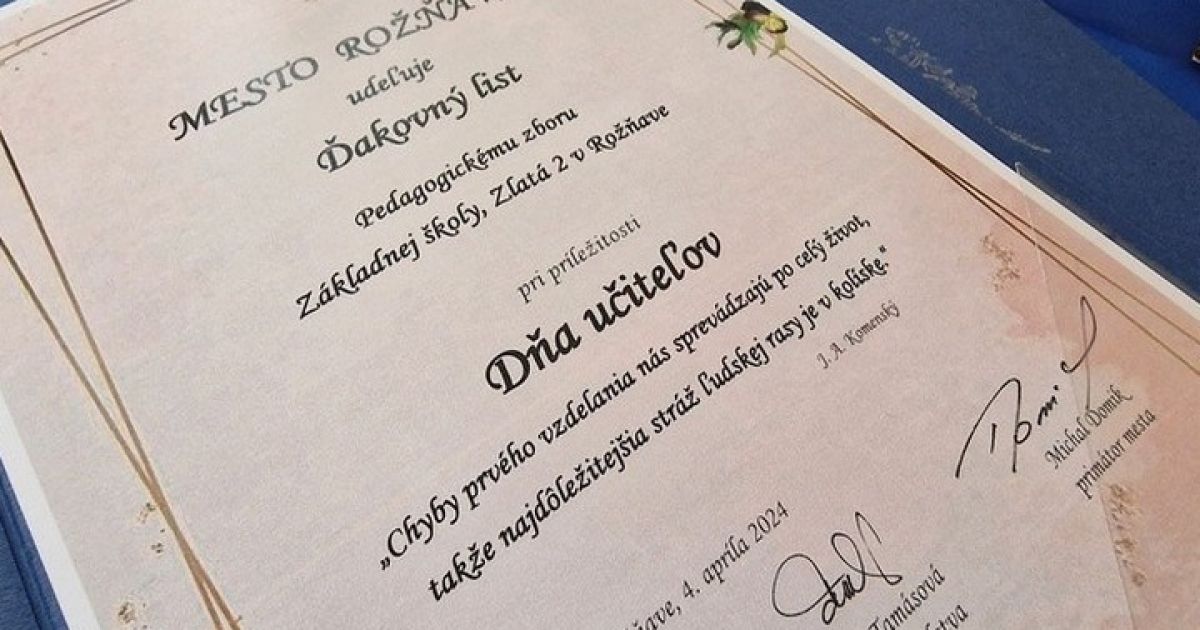 MESTO ROŽŇA
udeľuje
Ďakovný list
Pedagogickému zboru
Základnej školy, Zlatá 2 v Rožňave
pri príležitosti
Dňa učiteľov
„Chyby prvého vzdelania nás sprevádzajú po celý život,
takže najdôležitejšia stráž ľudskej rasy je v kolíske.“
J. A. Komenský
Michal Domik
primátor mesta
ňave, 4. apríla 2024
Tamásová